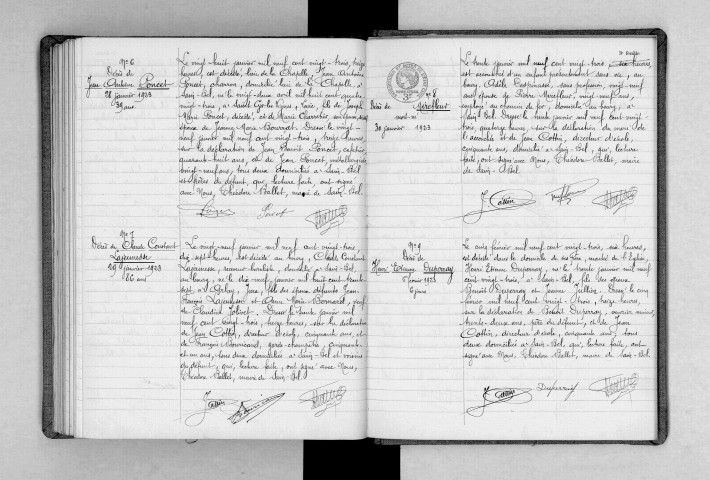 N° 6
Décès de
Jean Antoine Poncet
28 janvier 1923
39 ans
Le vingt-huit janvier mil neuf cent vingt-trois, treize
heures, est décédé, lieu de la Chapelle, Jean Antoine
Poncet, charron, domicilié lieu de la Chapelle, à
Sain-Bel, né le vingt-deux avril mil huit cent quatre-
vingt-trois, à Loire, fils de Joseph
Poncet, décédé, et de Marie
époux de Jeanne Marie Dressé le vingt-
neuf janvier mil neuf cent vingt-trois, heures
sur la déclaration de Jean Benoit Poncet,
quarante-huit ans, et de Jean Poncet, métallurgiste,
vingt-neuf ans, tous deux domiciliés à Sain-Bel
et frères du défunt, qui, lecture faite, ont signé
avec Nous, Théodore Ballet, maire de Sain-Bel.
N° 7
Décès de Claude Constant
Lajeunesse
29 janvier 1923
86 ans
Le vingt-neuf janvier mil neuf cent vingt-trois,
dix-sept heures, est décédé au bourg, Claude Constant
Lajeunesse, domicilié à Sain-Bel,
au bourg, né le dix-neuf, mil huit cent trente-
sept, à Jura, fils des époux défunts Jean-
François Lajeunesse et Anne Marie Bernard, veuf
de Claudine Dressé le trente janvier mil
neuf cent vingt-trois, heures, sur la déclaration
de Jean Cottin, directeur d'école, cinquante ans, et
de François garde-champêtre, cinquante-
et-un ans, tous deux domiciliés à Sain-Bel et voisins
du défunt, qui, lecture faite, ont signé avec Nous,
Théodore Ballet, maire de Sain-Bel.
N° 8
Décès de
mort-né
30 janvier 1923
Le trente janvier mil neuf cent vingt-trois
est accouchée d'un enfant présentement sans vie, au
bourg, sans profession, vingt-neuf
ans, épouse de Pierre vingt-neuf ans,
employé au chemin de fer, domiciliés au bourg, à
Sain-Bel. Dressé le trente janvier mil neuf cent vingt-
trois, quatorze heures, sur la déclaration du mari de
l'accouchée et de Jean Cottin, directeur d'école,
cinquante ans, domicilié à Sain-Bel, qui, lecture
faite, ont signé avec Nous, Théodore Ballet, maire
de Sain-Bel.
J. Cottin
N° 9
Décès de
Henri Etienne Duperray
5 février 1923
6 jours
Le cinq février mil neuf cent vingt-trois, six heures,
est décédé dans le domicile de son père,
Henri Etienne Duperray, né le trente janvier mil neuf
cent vingt-trois, à Sain-Bel, fils des époux
Benoit Duperray et Jeanne Dressé le cinq
février mil neuf cent vingt-trois, treize heures,
sur la déclaration de Benoit Duperray, ouvrier mineur,
trente-deux ans, père du défunt, et de Jean
Cottin, directeur d'école, cinquante ans, tous
deux domiciliés à Sain-Bel, qui, lecture faite, ont
signé avec Nous, Théodore Ballet, maire de Sain-Bel.
J. Cottin Duperray